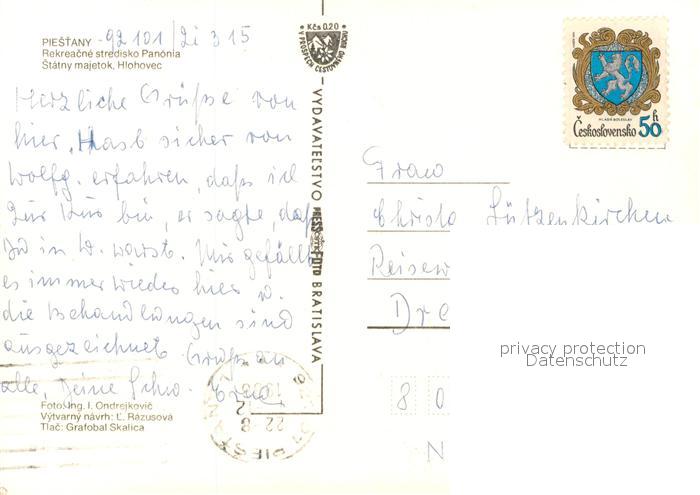 PIEŠŤANY - 92101 / Zi 315
Rekreačné stredisko Panónia
Štátny majetok, Hlohovec
Herzliche Grüße von
hier. Hast sicher von
Wolfg. erfahren, daß ich
zur Kur bin, er sagte, daß
Du in W. warst. Mir gefällt
es immer wieder hier u.
die Behandlungen sind
ausgezeichnet. Grüße an
alle, Deine Schw. Erna
Foto: Ing. I. Ondrejkovič
Výtvarný návrh: Ľ. Rázusová
Tlač: Grafobal Skalica
Kčs 0,20
V PROSPECH CESTOVNÉHO RUCHU
VYDAVATEĽSTVO PRESSFOTO BRATISLAVA
MLADÁ BOLESLAV
Československo 50 h
Frau
Christa Lützenkirchen
Reisew
Dre
privacy protection
Datenschutz
80
N
PIEŠŤANY
22.-8